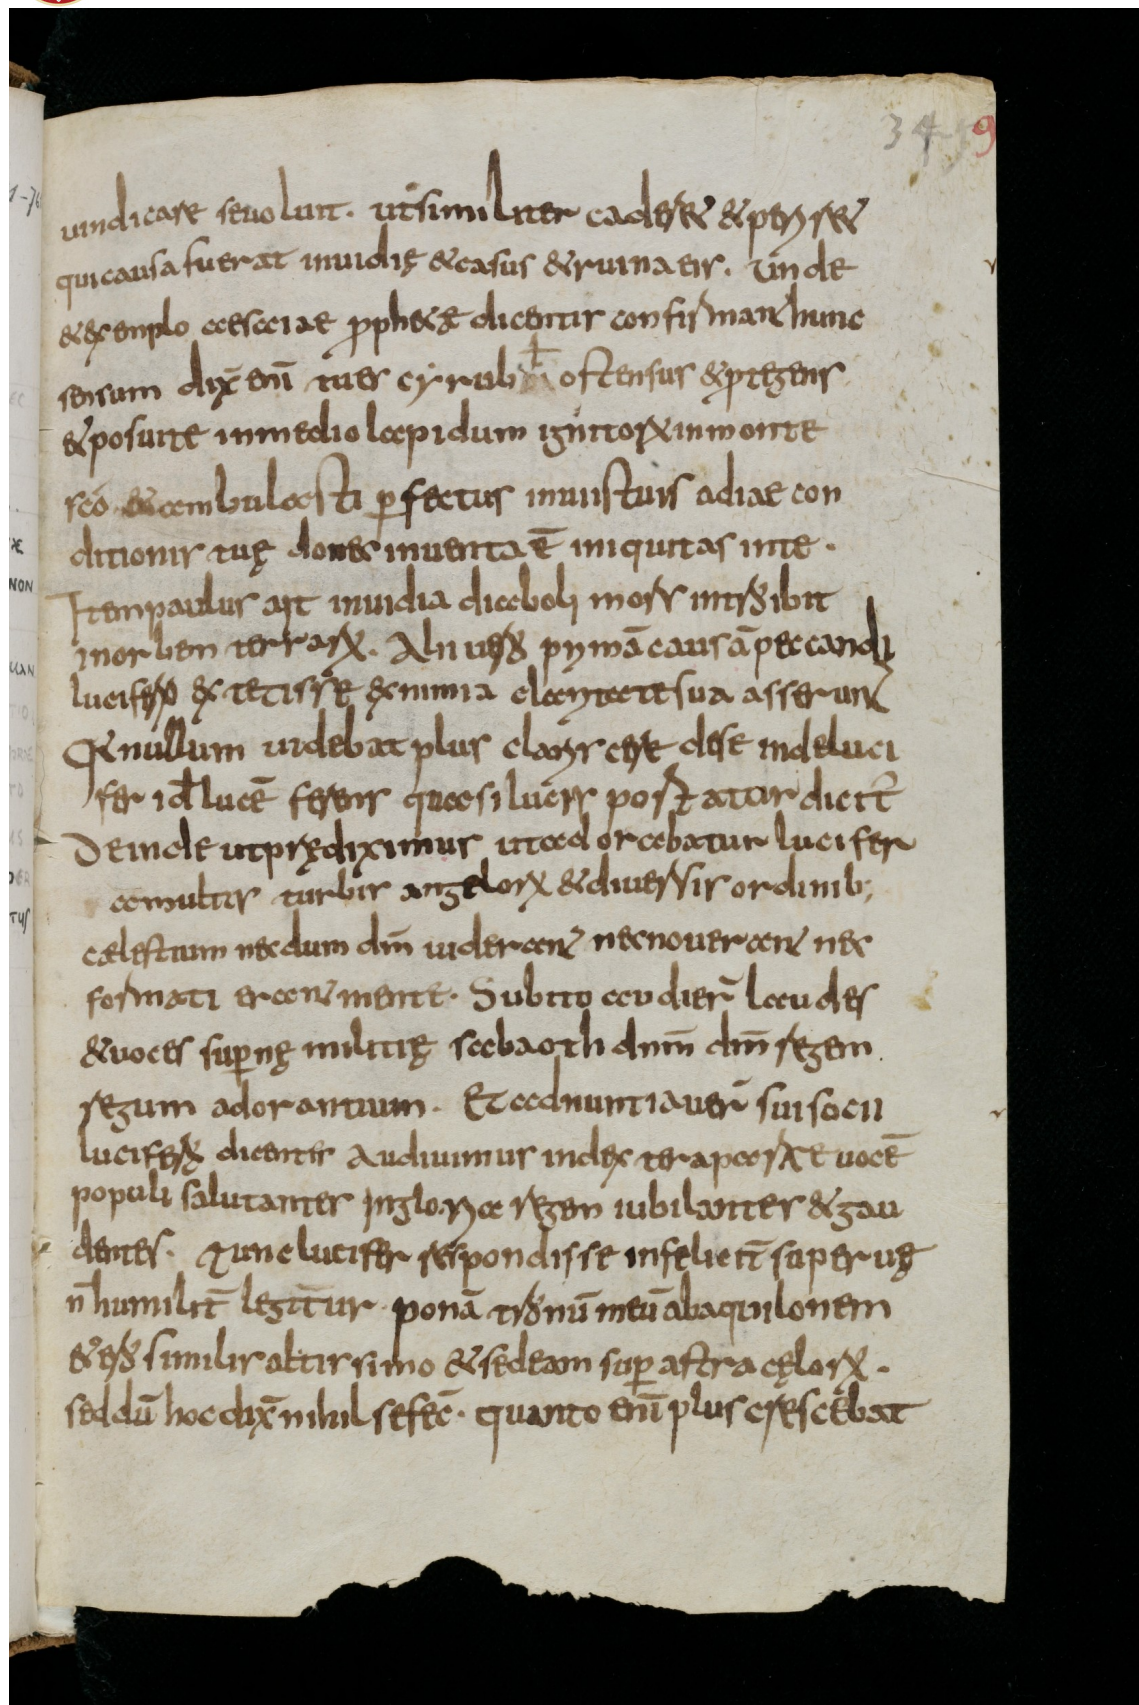 34 9
uindicare se uolunt. ut similiter caderet & periret
qui causa fuerat inuidię & casus & ruina eis. Unde
& exemplo eceseciae ꝓphetae dicentis confirmant hunc
sensum dix̄ enī tu es cyrubin ostensus & ꝓtegens
& posuit te in medio lapidum ignitoꝝ in monte
sc̄o & ambulasti ꝑfectus in uiis tuis a diae con
ditionis tuę donec inuenta ē iniquitas in te.
Item paulus ait inuidia diaboli mors introibit
in orbem terraꝝ. Alii uero primā causā peccandi
lucifero extetisse ex nimia claritate sua asserunt
Qd nullum uidebat plus clariscere de se inde luci
fer id̄ lucē ferens quasi lucis portatur dicit̄
Deinde ut prędiximus ut adorabatur lucifer
a multis turbis angeloꝝ & diuersis ordinib;
cælestium necdum dm̄ uiderant nec nouerant nec
formati erant mente. Subito audier̄ laudes
& uoces suꝑnę militię sabaoth dnm̄ dm̄ regem
regum adorantium. Et adnuntiauer̄ sui socii
luciferi dicentes Audiuimus in dextera parte uocē
populi salutantes in gloria regem iubilantes & gau
dentes. Tunc lucifer respondisse infelicit̄ superuę
n̄ humilit̄ legit̄ur ponā tronū meū ab aquilonem
& ero similis altissimo & sedeam suꝑ astra cęloꝝ.
sed dū hoc dix̄ nihil se fec̄. quanto enī plus crescebat